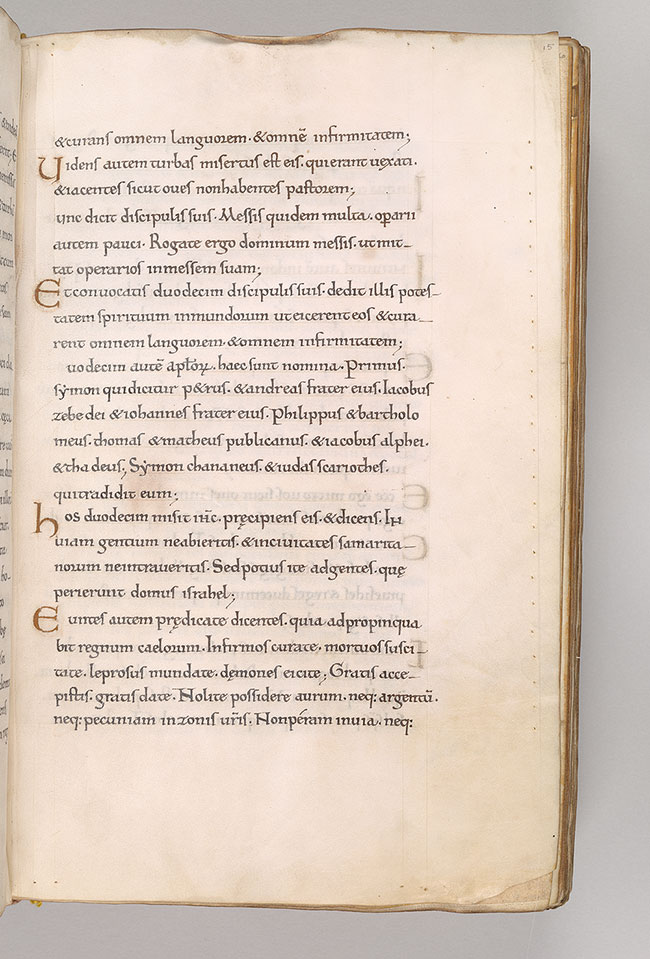 15
&curans omnem languorem · &omnē infirmitatem;
Uidens autem turbas misertus est eis · quierant uexati ·
&iacentes sicut oues nonhabentes pastorem;
unc dicit discipulis suis · Messis quidem multa · operarii
autem pauci · Rogate ergo dominum messis · ut mit_
tat operarios inmessem suam;
Et conuocatis duodecim discipulis suis · dedit illis potes_
tatem spirituum inmundorum ut eicerent eos & cura_
rent omnem languorem · &omnem infirmitatem;
uodecim autē aplorum · haec sunt nomina · Primus ·
symon qui dicitur p&rus · &andreas frater eius · Iacobus
zebe dei &iohannes frater eius · Philippus & bartholo
meus · thomas &matheus publicanus · &iacobus alphei ·
&tha deus; Symon chananeus · &iudas scariothes ·
quitradidit eum;
hos duodecim misit iħc · pręcipiens eis · &dicens · IN
uiam gentium neabieritis · &inciuitates samarita_
norum neintraueritis · Sed potius ite adgentes · quę
perierunt domus israhel;
Euntes autem prędicate dicentes · quia adpropinqua
bit regnum caelorum · Infirmos curate · mortuos susci_
tate · leprosus mundate · dęmones eicite; Gratis acce_
pistis · gratis date · Nolite possidere aurum · neq: argentū ·
neq: pecuniam inzonis uris · Non peram inuia · neq: